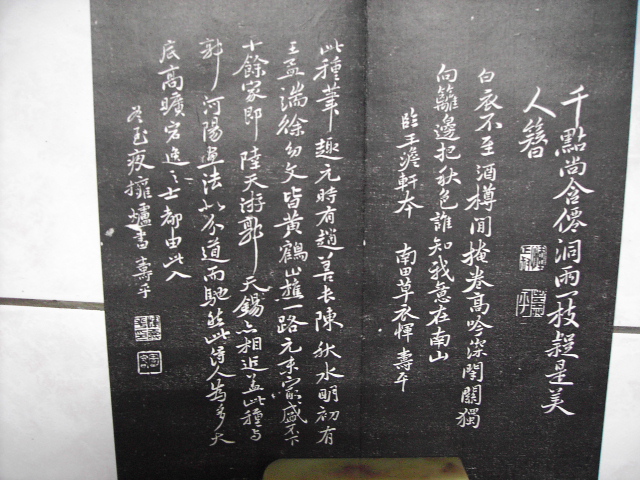 千點尚含僊洞雨一枝疑是美
人簪
白衣不至酒樽閒掩卷高吟深閉關獨
向籬邊把秋色誰知我意在南山
臨王澹軒本　南田草衣惲壽平
此種筆趣元時有趙善長陳秋水明初有
王孟端徐幼文皆黃鶴山樵一路元末寂盛不下
十餘家即陸天游郭天錫亦相近蓋此種与
郭河陽畫法公分道而馳然此得人為多大
底高曠宕逸之士都由此入
夜擁爐書壽平